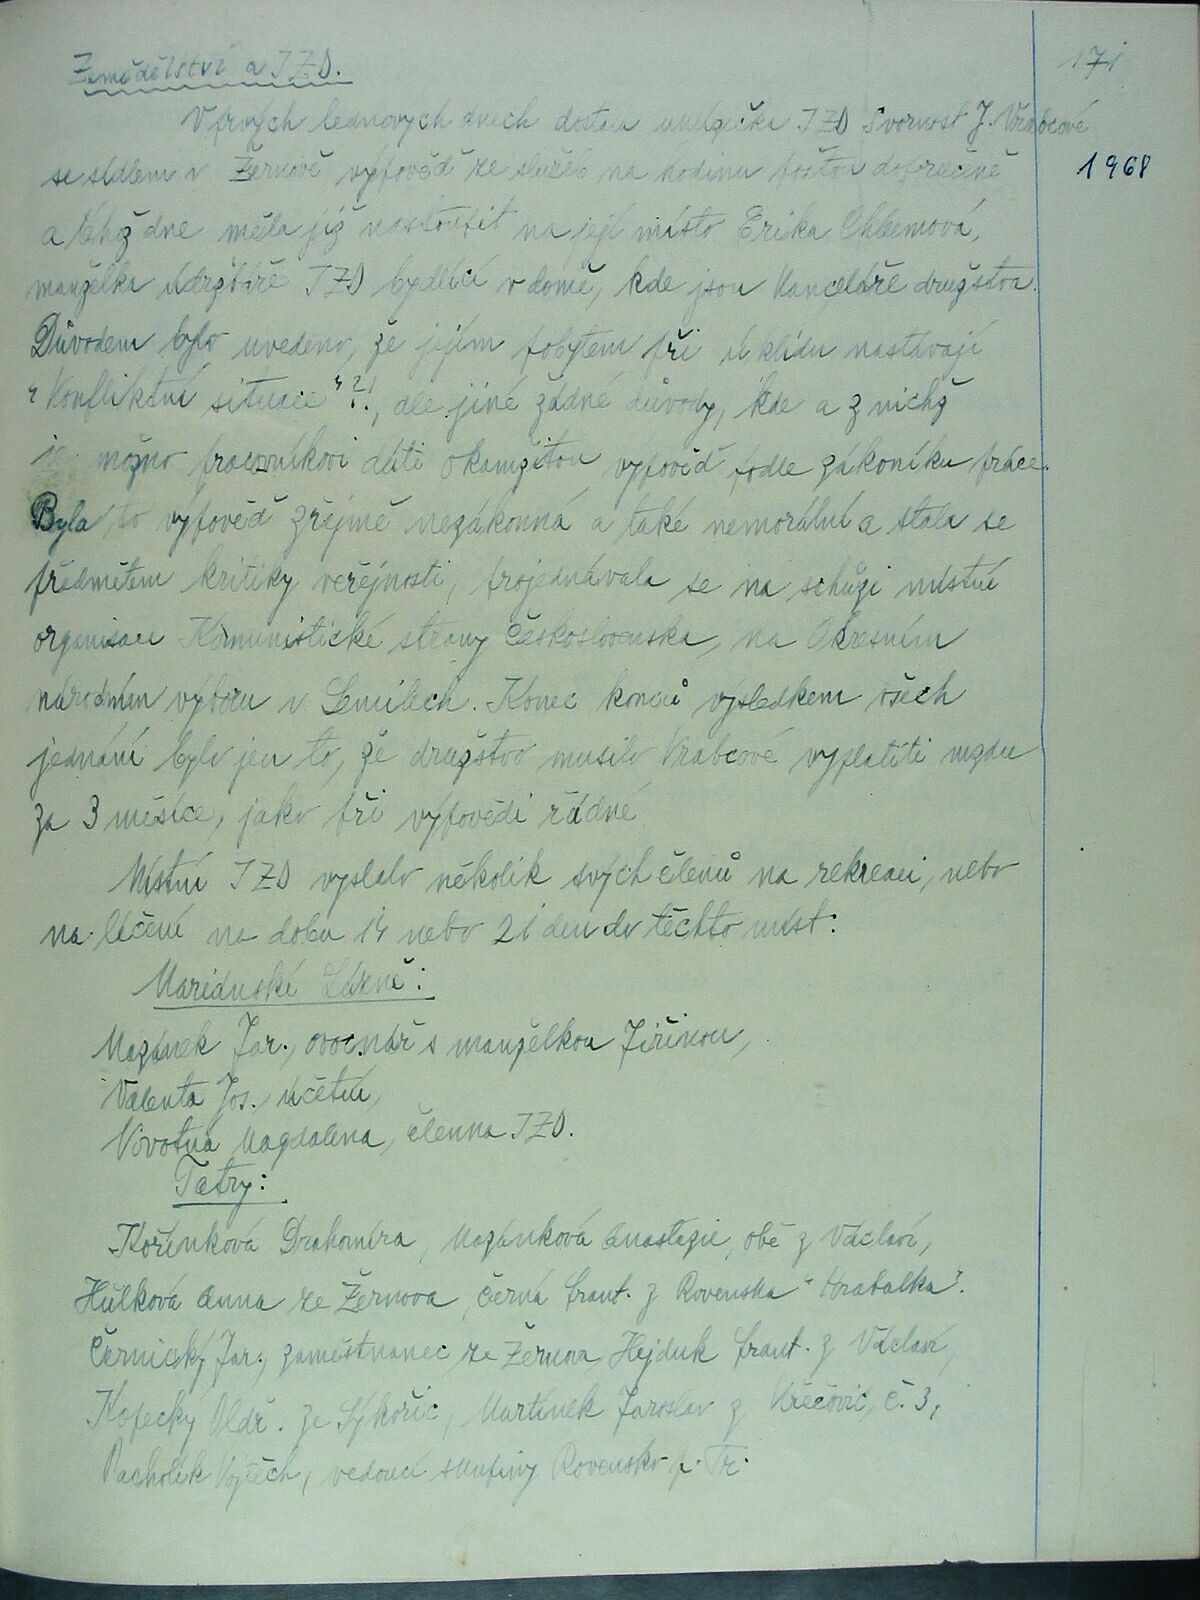 171
Zemědělství a JZD.
V prvých lednových dnech dostala uklizečka JZD Svornost J. Vrabcová
1968
se sídlem v Žernově výpověď ze služeb na hodinu poštou doporučeně
a téhož dne měla již nastoupit na její místo Erika Chlumová,
manželka údržbáře JZD bydlící v domě, kde jsou kanceláře družstva.
Důvodem bylo uvedeno, že jejím pobytem při úklidu nastávají
"Konfliktní situace"?!, ale jiné žádné důvody, kde a z nichž
je možno pracovníkovi dáti okamžitou výpověď podle zákoníku práce.
Byla to výpověď zřejmě nezákonná a také nemorální a stala se
předmětem kritiky veřejnosti, projednávala se na schůzi místní
organisace Komunistické strany Československa, na Okresním
národním výboru v Semilech. Konec konců výsledkem všech
jednání bylo jen to, že družstvo musilo Vrabcové vyplatiti mzdu
za 3 měsíce, jako při výpovědi řádné.
Místní JZD vyslalo několik svých členů na rekreaci, nebo
na léčení na dobu 14 nebo 21 den do těchto míst:
Mariánské Lázně:
Mazánek Jar., ovocnář s manželkou Jiřinou,
Valenta Jos. účetní,
Novotná Magdalena, členna JZD.
Tatry:
Kořínková Drahomíra, Mazánková Anastazie, obě z Václaví,
Hůlková Anna ze Žernova, Černá Frant. z Rovenska "Hrabalka".
Černický Jar., zaměstnanec ze Žernova, Hejduk Frant. z Václaví,
Kopecký Oldř. ze Sýkořic, Martínek Jaroslav z Křečovic, č. 3,
Pacholík Vojtěch, vedoucí skupiny Rovensko p. Tr.